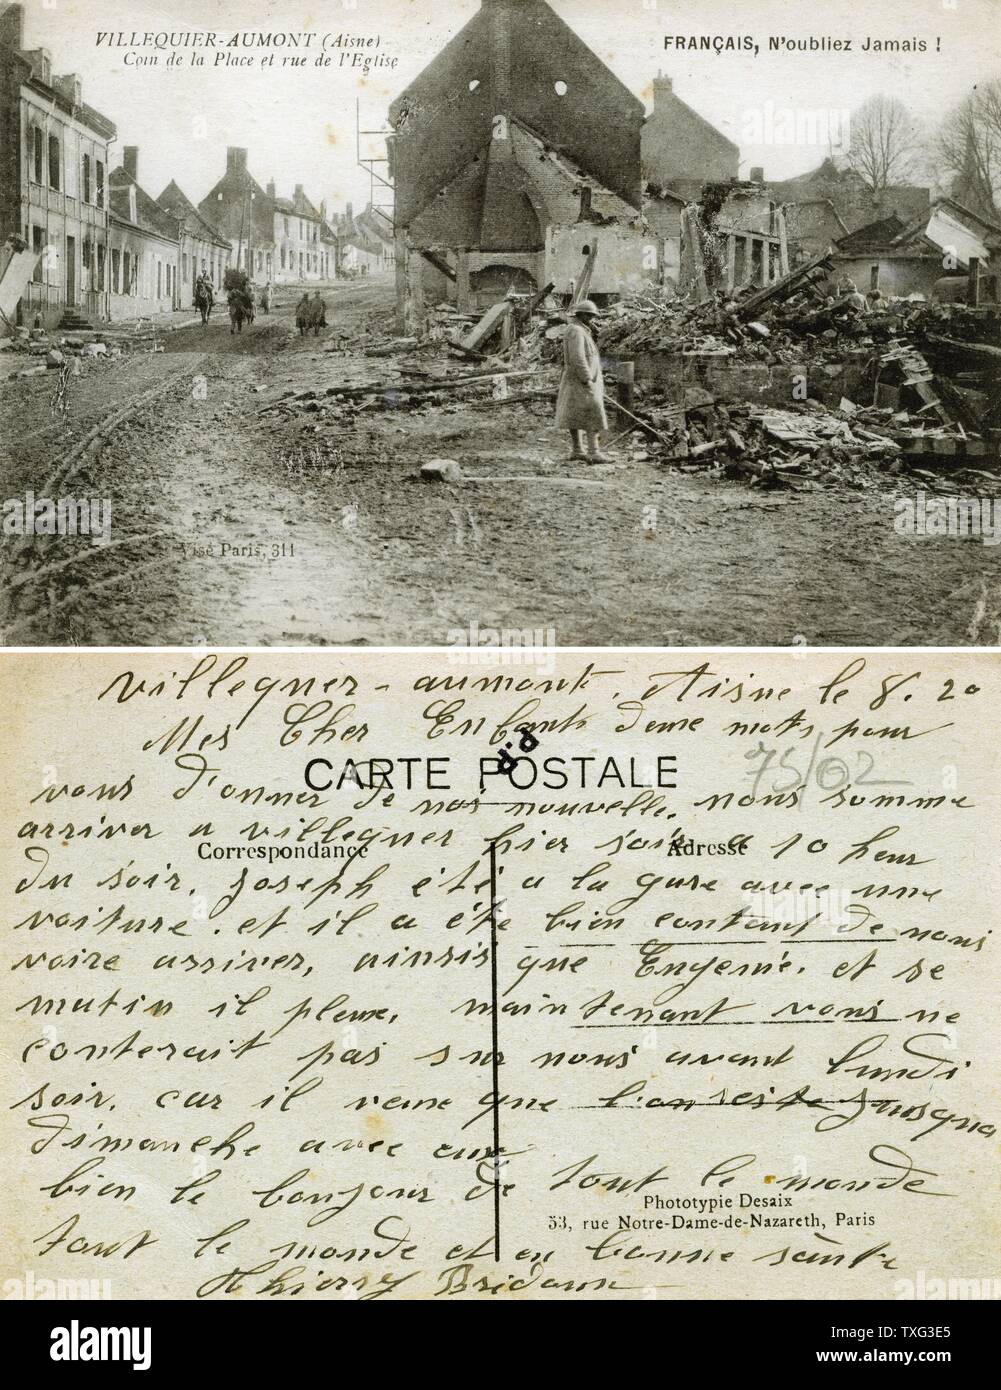 VILLEQUIER-AUMONT (Aisne)
Coin de la Place et rue de l'Eglise
FRANÇAIS, N'oubliez Jamais !
Visé Paris, 311
villequer-aumont, Aisne le 8. 20
Mes Cher Enfants deux mots pour
CARTE POSTALE
75/02
vous d'onner de nos nouvelle, nous somme
arriver a villequer hier soir a 10 heur
Correspondance
Adresse
du soir, Joseph été a la gare avec une
voiture. et il a été bien contant de nous
voire arriver, ainsis que Eugenie. et se
matin il pleux, maintenant vous ne
conterait pas sur nous avant lundi
soir, car il veux que l'on reste Jusqua
dimanche avec eux
bien le bonjour de tout le monde
Phototypie Desaix
53, rue Notre-Dame-de-Nazareth, Paris
tout le monde et en bonne sante
Thierry
alamy
Image ID: TXG3E5
www.alamy.com